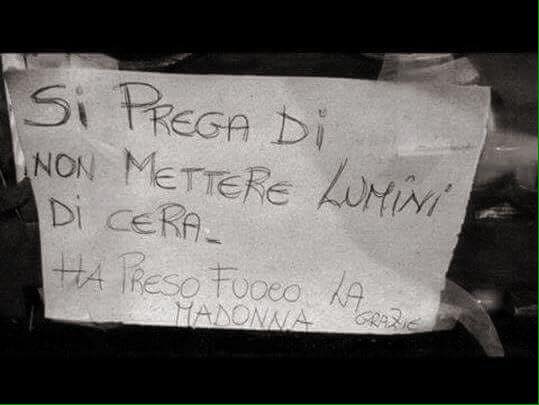 Si PREGA Di
NON METTERE LUMiNi
Di CERA.
HA PRESO FUOCO LA
MADONNA GRAZIE